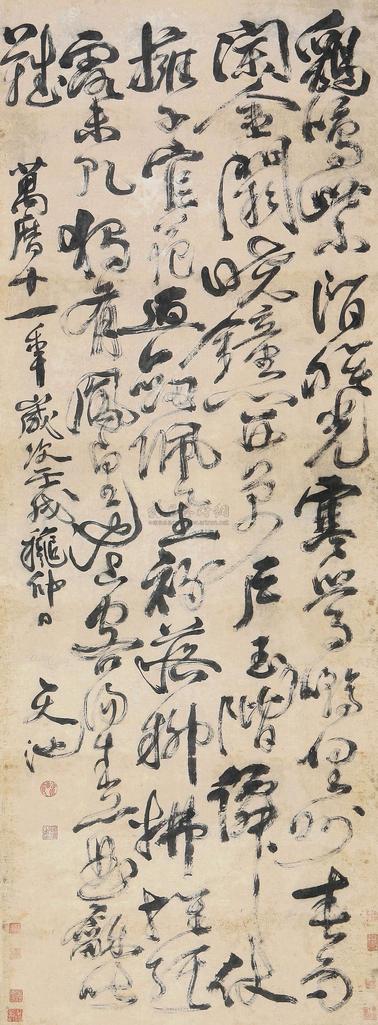 鷄鳴紫陌曙光寒鶯囀皇州春色
闌金闕曉鐘開萬戶玉階僊仗
擁千官花迎劍佩星初落柳拂旌旗
露未乾獨有鳳皇池上客陽春一曲龢皆
難
萬曆十一年歲次壬戌穐仲日
天池